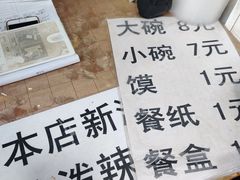 大碗 8元
小碗 7元
馍 1元
餐纸 1
餐盒 1
本店新
泼辣